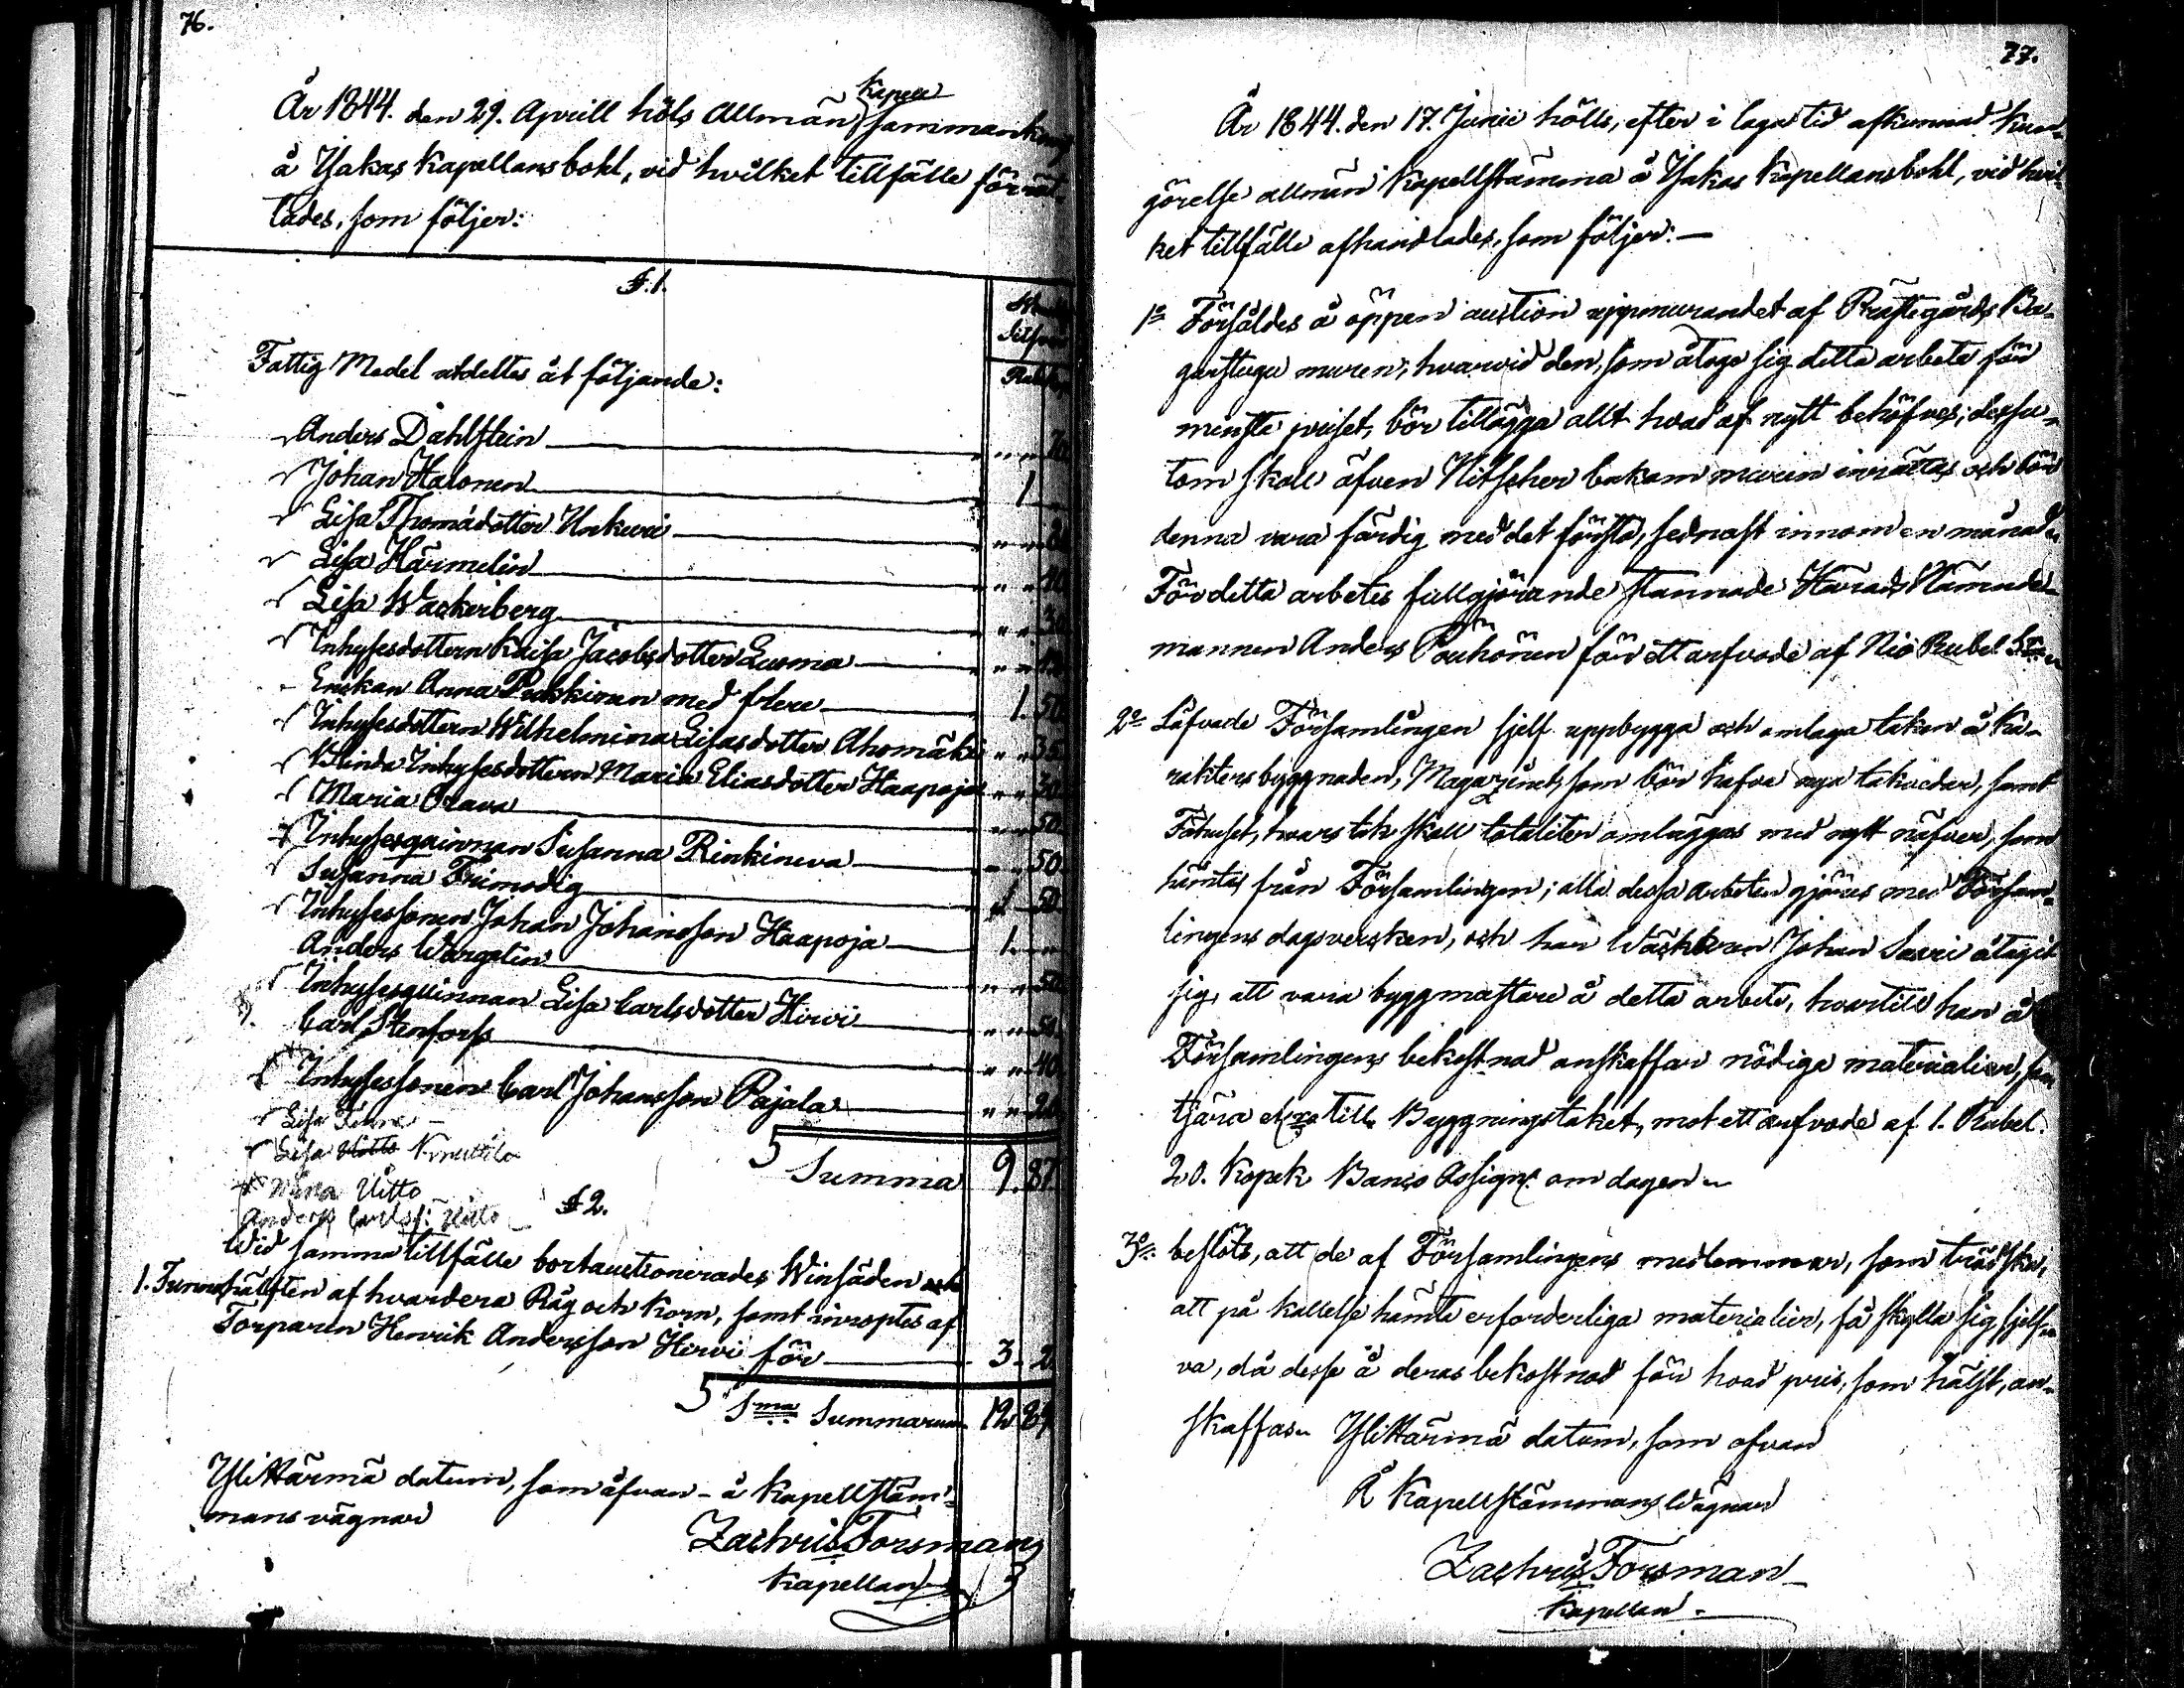 76.
År 1844. den 29. Aprill höls Allmän Kapell sammankomst
å Ycfakas Kapellans bohl, vid hvilket tillfälle förrät-
tades, som följer:
§.1.
Silfver
Fattig Medel utdeltes åt följande:
Anders Dahlstein
Johan Halonen 1
Lisa Thomasdotter Unkuri
Lisa Härmelin
Lisa Wackerberg
Inhysesdottern Kaisa Jacobsdotter Luoma
Enkan Anna Packkinen med flere 1. 50
Inhysesdottern Wilhelmina Lisasdotter Ahomäki " " 35
Blinda Inhysesdottern Maria Eliasdotter Haapoja " " 30
Maria Orava " " 50
Inhysesqvinnan Susanna Rinkineva " " 50
Susanna Frimodig 50
Inhysessonen Johan Johansson Haapoja 1.
Anders Wargelin " " 50
Inhysesqvinnan Lisa Carlsdotter Hirvi " " 50.
Carl Stenforss " " 40
Inhysessonen Carl Johansson Pajala " " 20
Lisa
Lisa Knuttila
Mina Uitto
Anders Carlss: Uitto
Summa 9. 87.
§ 2.
Wid samma tillfälle bortauctionerades Winsäden och
1. Tunna hälften af hvardera Råg och Korn, samt inroptes af
Torparen Henrik Andersson Hirvi för 3. 2.
Sma Summarum 12. 89
Ylihärmä datum, som åfvan - å Kapellstäm-
mans vägnar
Zachris Forsman
Kapellan
77.
År 1844. den 17. Junii hölls, efter i laga tid afkunnad kun-
görelse allmän Kapellstämma å Kapellans bohl, vid hvil-
ket tillfälle afhandlades, som följer:—
1o Försåldes å öppen auction uppmurandet af Prästegårds Ba-
garstugu muren; hvarvid den, som åtoge sig detta arbete för
minsta priset, bör tillägga allt hvad af nytt behöfves; dessu-
tom skall äfven Nitscher bakom muren inrättas och bör
denna vara färdig med det första, sednast innom en månad.
För detta arbetes fullgjörande stannade Härads Nämnde-
mannen Anders Pouhonen för ett arfvode af Nio Rubel
2o Låfvade Församlingen sjelf uppbygga och omlaga taken å Ka-
raktersbyggnaden, Magazinet, som bör hafva nya takveder, samt
Fähuset, hvars tak skall totaliter omläggas med nytt näfver, som
hämtas från Församlingen; alla dessa arbeten gjöres med Försam-
lingens dagsverken, och har Wäcktaren Johan Saari åtagit
sig, att vara byggmästare å detta arbete, hvartill han å
Församlingens bekostnad anskaffar nödiga materialier, som
tjära etc till Byggningstaket, mot ett arfvode af 1. Rubel.
20. Kopek Banco Assign: om dagen
3o beslöts, att de af Församlingens medlemmar, som trädska,
att på kallelse hämta erforderliga materialier, få skylla sig sjelf-
va, då desse å deras bekostnad för hvad pris, som hälst, an-
skaffas. Ylihärmä datum, som ofvan
Å Kapellstämmans Wägnar
Zachris Forsman
Kapellan